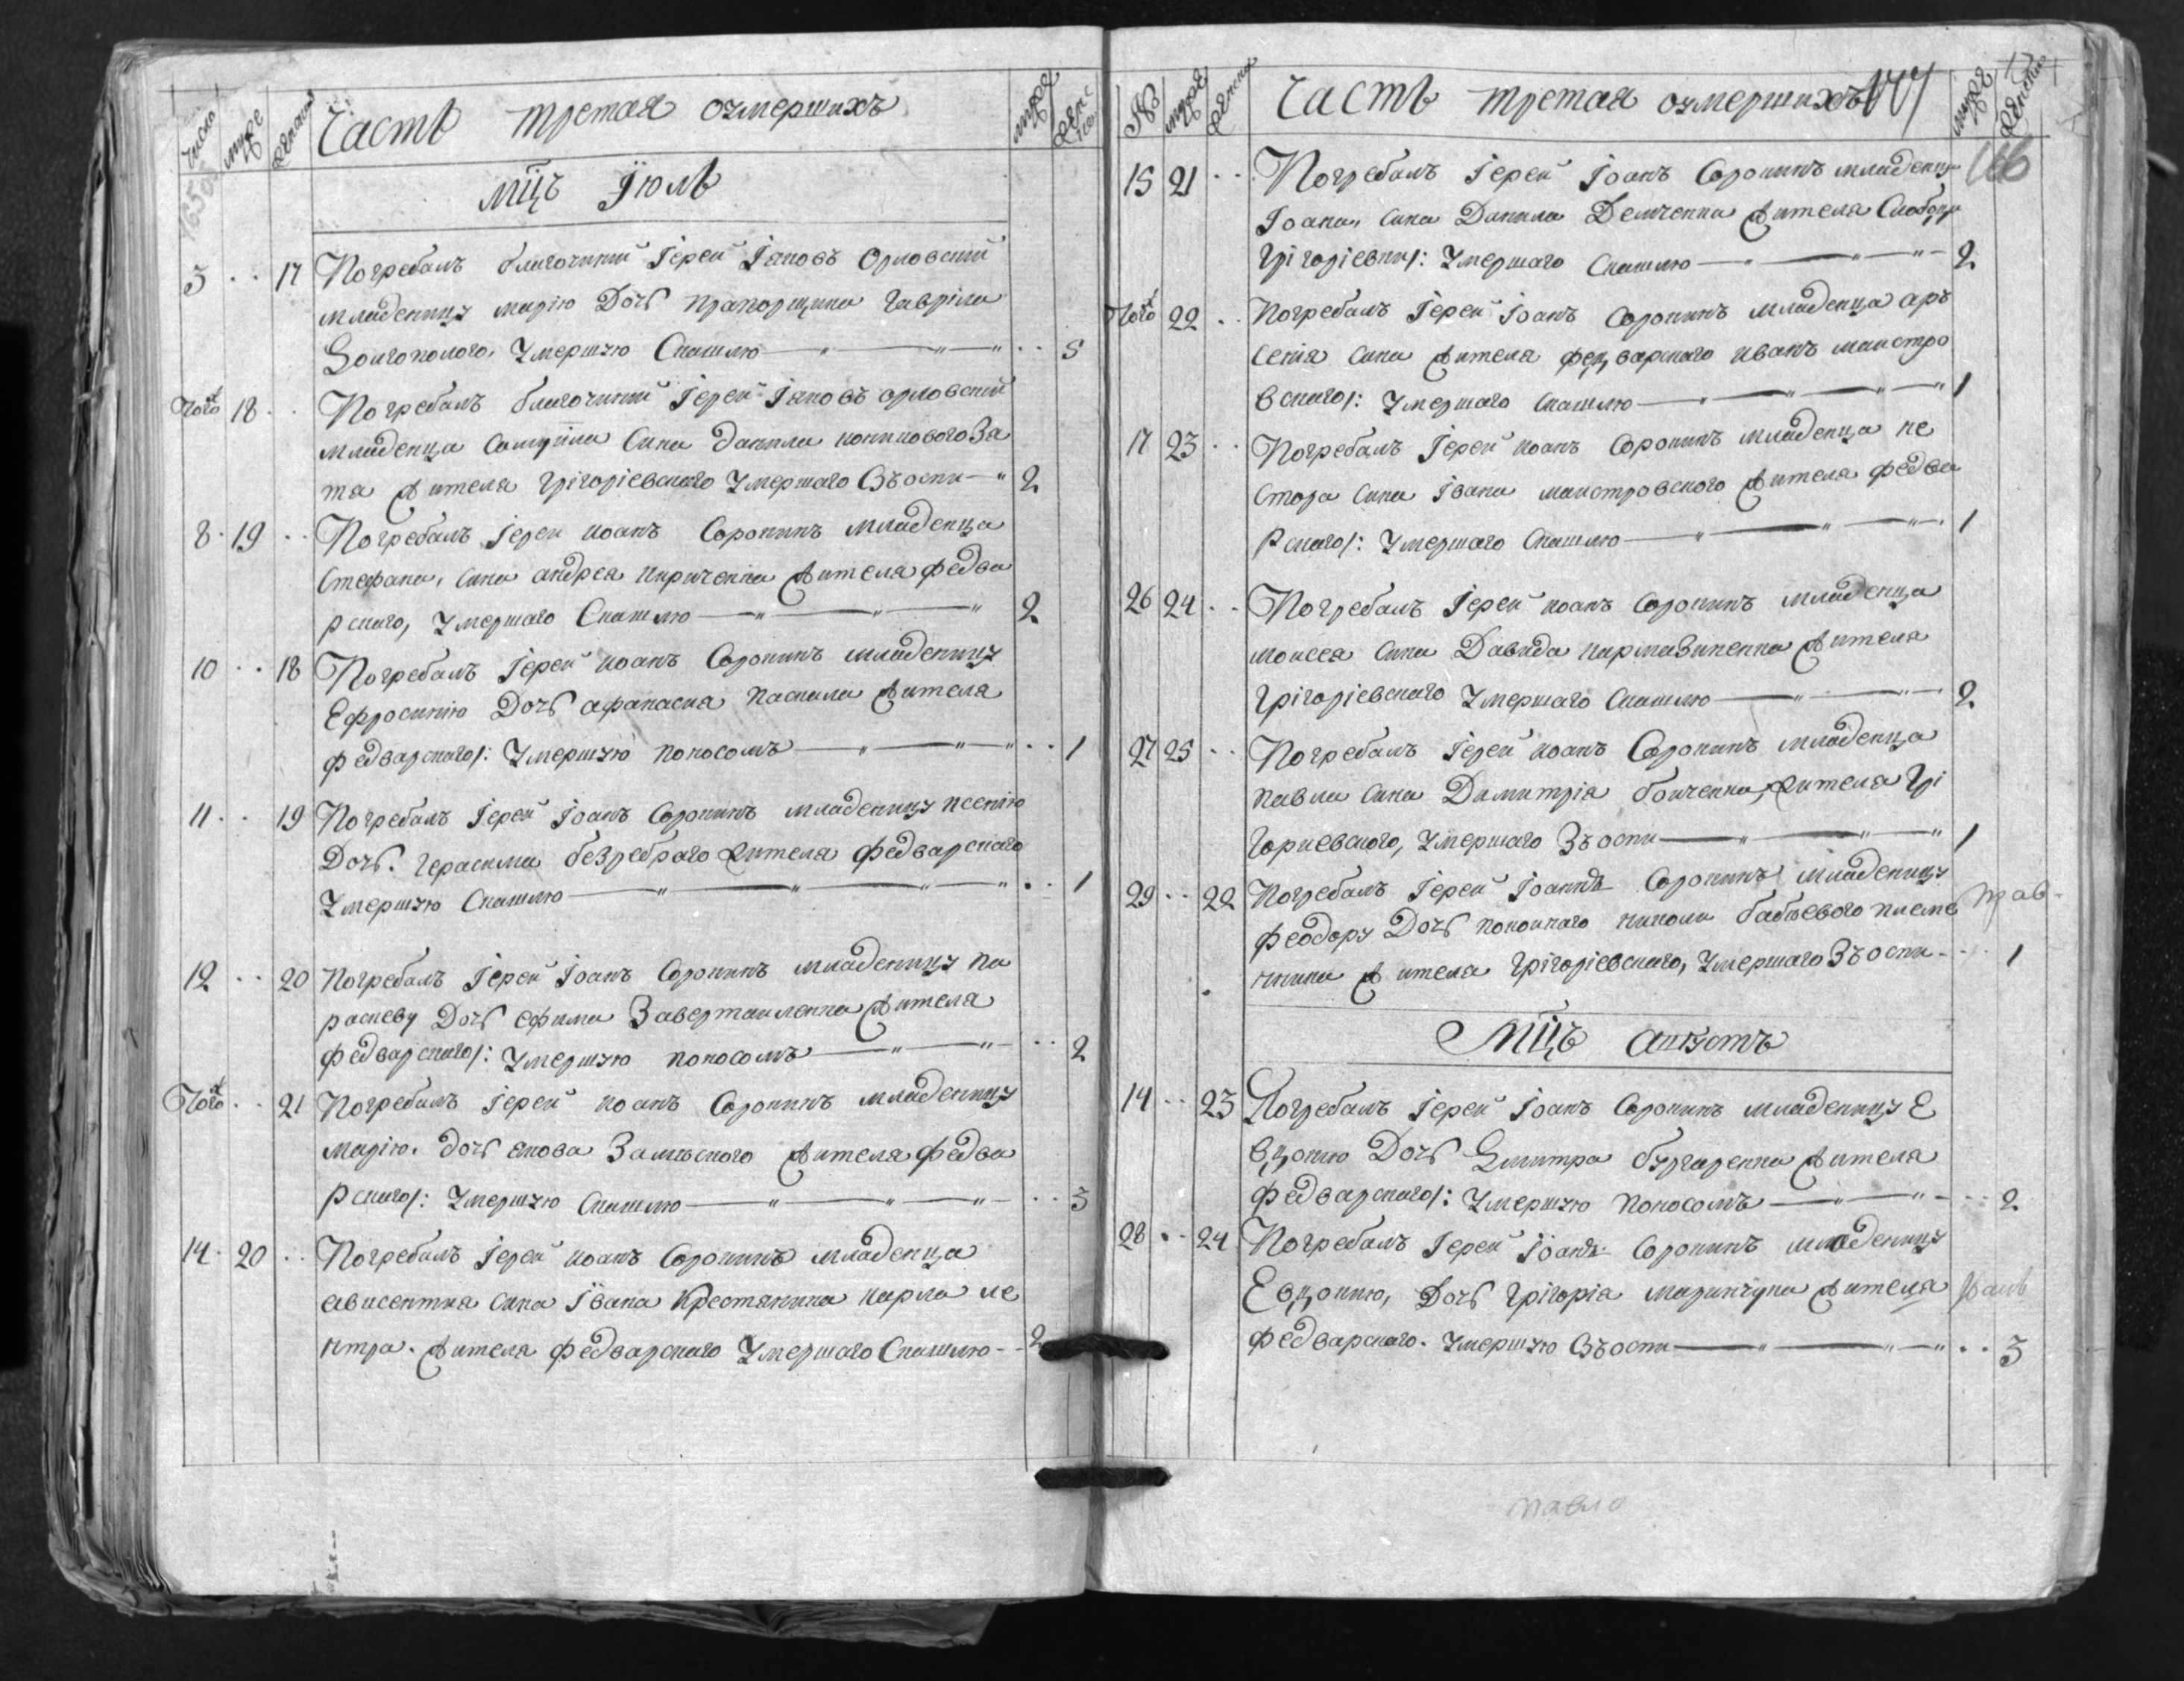 Число муже женск Часть третая оумершихъ муже женс
мцъ Їюль
3 17 Погребалъ благочинній Іерей Іяковъ Орловскій
младеницу марію Дочь прапорщика Гавріла
Долгополого, Умершую Кашлю 5
Того 18 Погребалъ благочинній Іерей Іяковъ орловскій
младенца Самуила Сина данила коникового За
та жителя Грігоріевского Умершаго Съоспи 2
8 19 Погребалъ Іерей иоанъ Сорокинъ младенца
Стефана, сина андрея кириченка жителя федва
рскаго, Умершаго Скашлю 2
10 18 Погребалъ Іерей иоанъ Сорокинъ младеницу
Ефросинію Дочь афанасия жителя
федварскаго: Умершую поносомъ 1
11 19 Погребалъ Іерей Іоанъ Сорокинъ младеницу ксенію
Дочь. Герасима безребраго жителя федварскаго
Умершую Скашлю 1
12 20 Погребалъ Іерей Іоанъ Сорокинъ младеницу па
раскеву Дочь ефима Завертаиленка жителя
федварскаго: Умершую поносомъ 2
Того 21 Погребалъ Іерей иоанъ Сорокинъ младеницу
марію. дочь якова жителя федва
рскаго: Умершую Скашлю 3
14 20 Погребалъ Іерей иоанъ Сорокинъ младенца
авксентия сина Івана Крестянина карпа
жителя федварскаго Умершаго Скашлю 2
№ муже женска Часть третая оумершихъ муже женски
166
15 21 Погребалъ Іерей Іоанъ Сорокинъ младенца
Іоана, сина Данила Демченка жителя Слободи
Грігоріевки: Умершаго Скашлю 2
Того 22 Погребалъ Іерей Іоанъ Сорокинъ младенца арь
сенія сина жителя федварскаго иванъ маистро
вскаго: Умершаго Скашлю 1
17 23 Погребалъ Іерей иоанъ Сорокинъ младенца не
стора сина Івана маистровского жителя федва
рскаго: Умершаго Скашлю 1
26 24 Погребалъ Іерей иоанъ Сорокинъ младенца
моисея сина Давида кармазиненка жителя
Грігоріевскаго Умершаго Скашлю 2
27 25 Погребалъ Іерей иоанъ Сорокинъ младенца
павла сина Димитрія боиченка, жителя Грі
гориевского, Умершаго Зъоспи 1
29 22 Погребалъ Іерей Іоаннъ Сорокинъ младеницу
феодору Дочь покоинаго николи бабѣевого племе
нника жителя Грігоріевскаго, Умершаго Зъоспи 1
Мцъ Августъ
14 23 Погребалъ Іерей Іоанъ Сорокинъ младеницу Е
вдокию Дочь Дмитра бургаренка жителя
федварскаго: Умершую поносомъ 2
28 24 Погребалъ Іерей Іоанъ Сорокинъ младеницу
Евдокию, Дочь Грігорія маринчука жителя
федварскаго. Умершую Зъоспи 3
павло